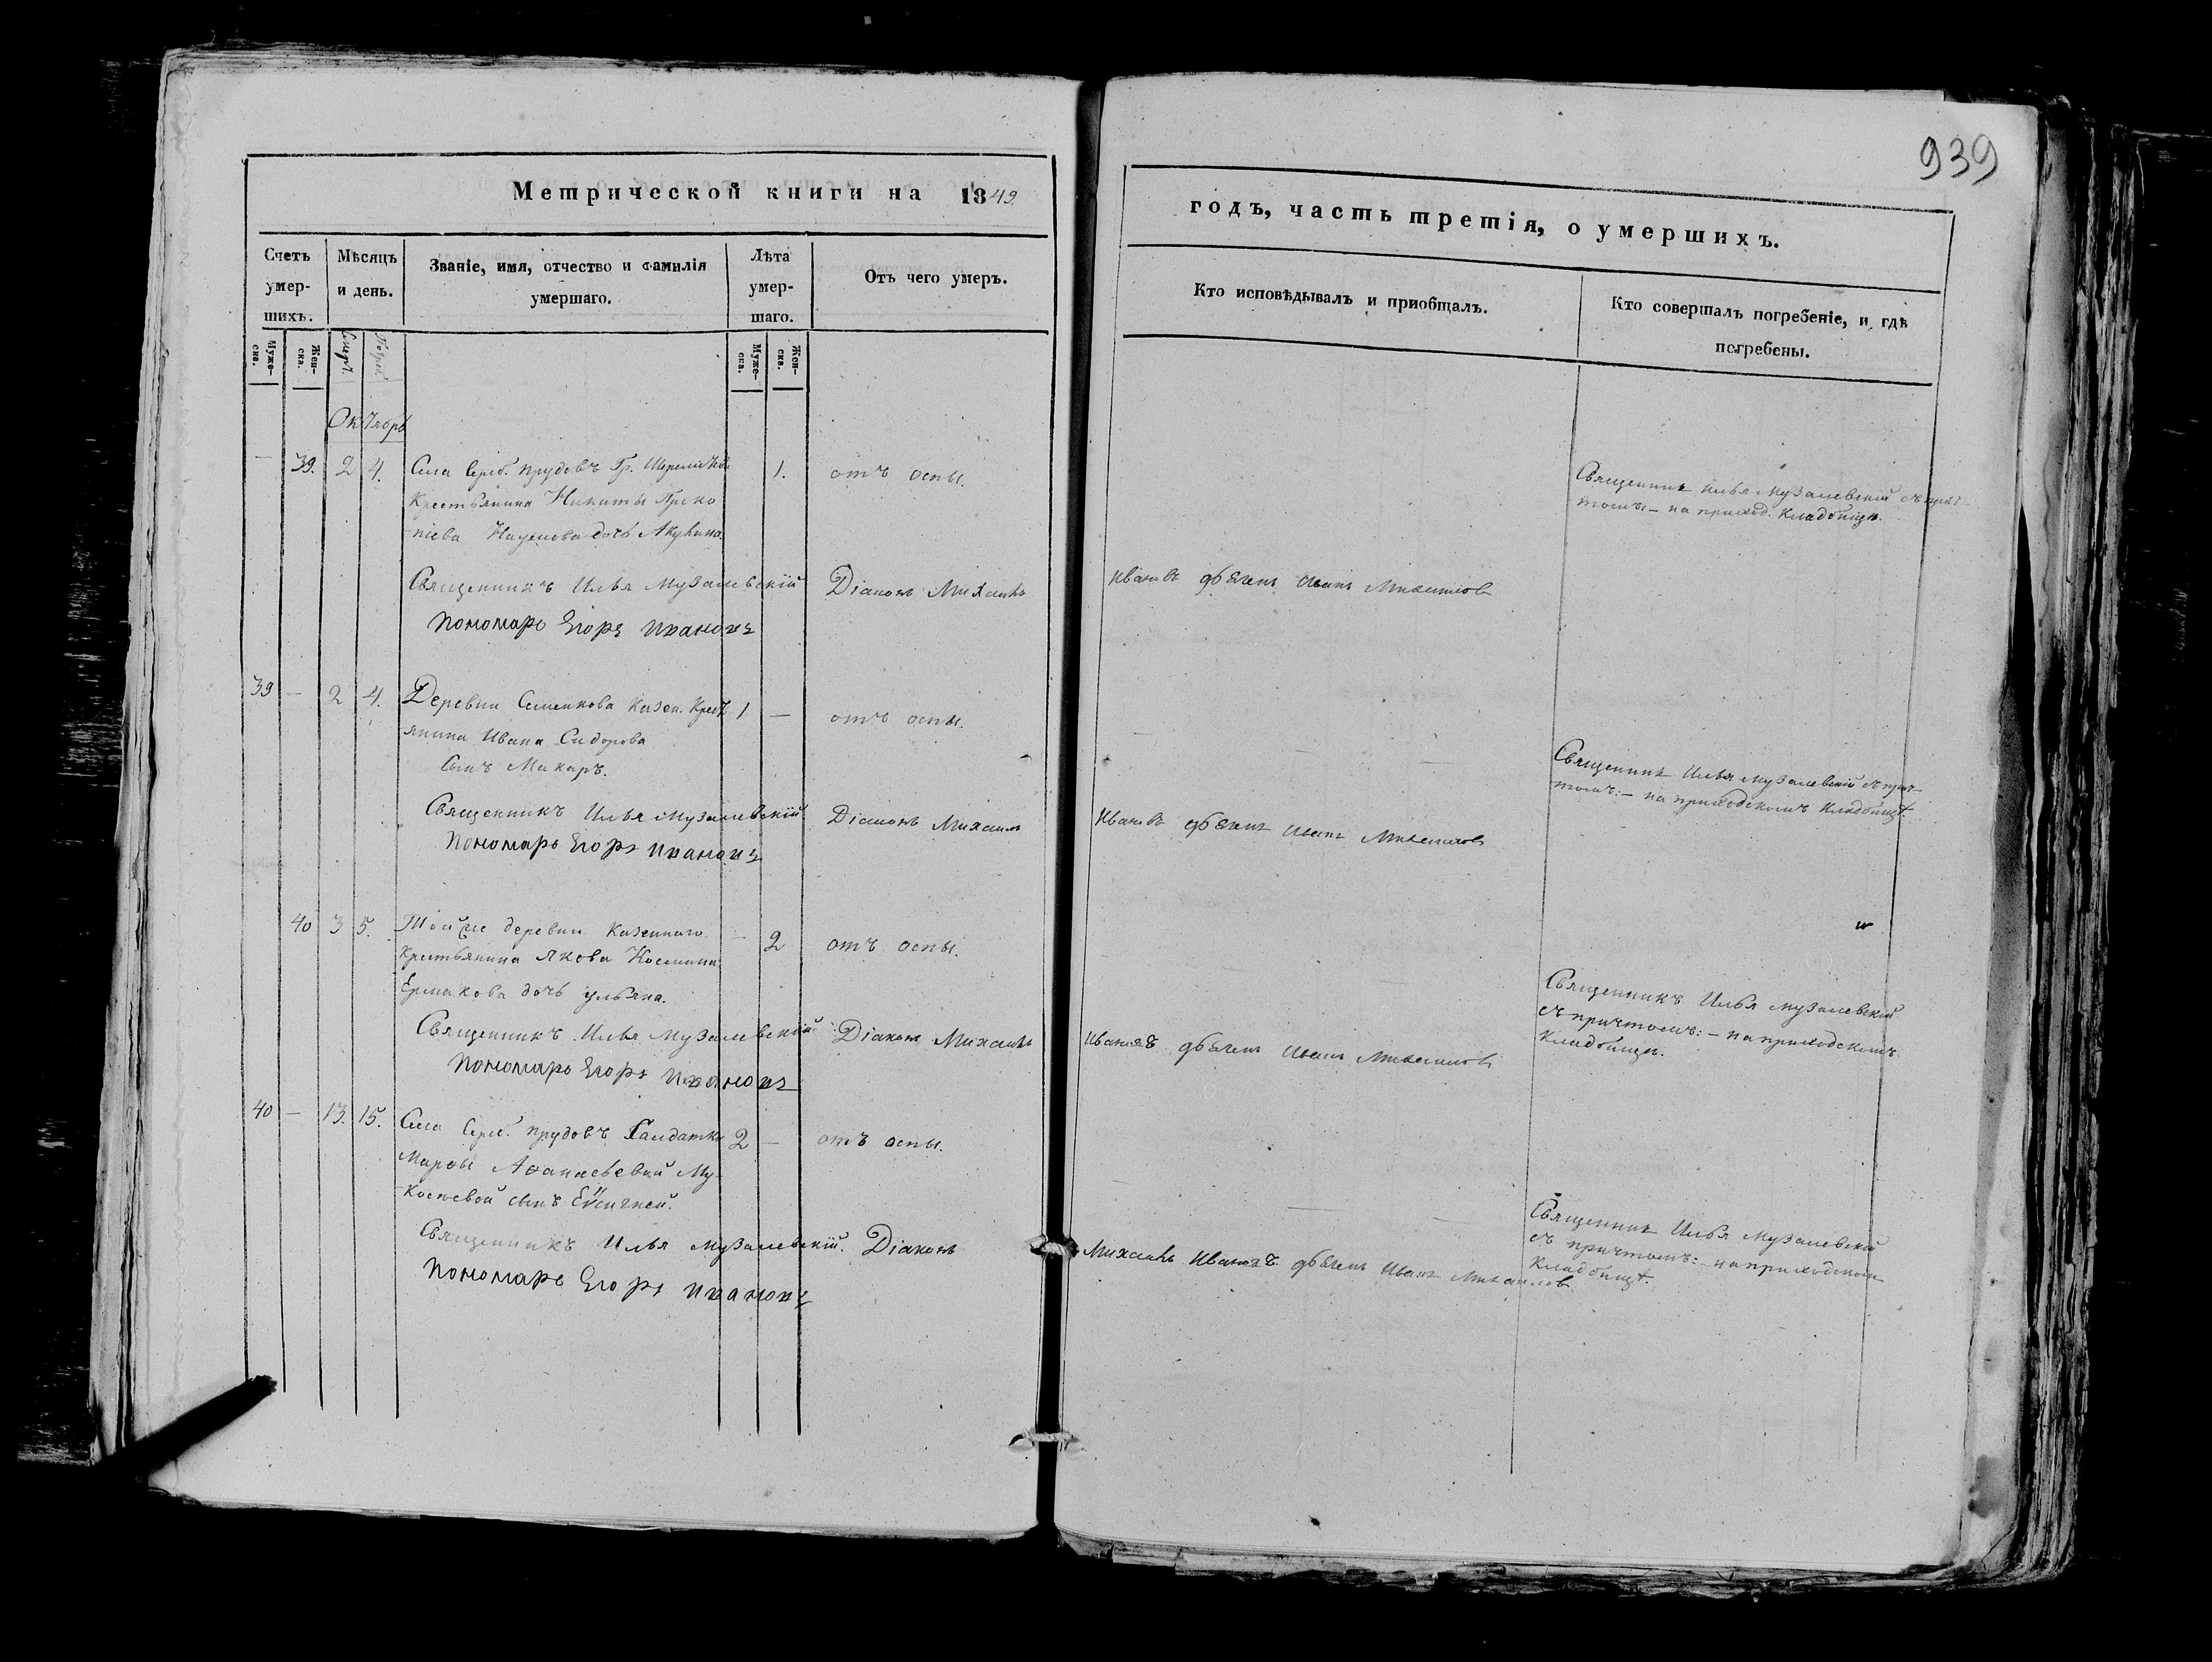 939
Метрической книги на 1849.
годъ, часть третія, о умершихъ.
Счетъ умер-шихъ.
Мѣсяцъ и день.
Званіе, имя, отчество и фамилія умершаго.
Лѣта умер-шаго.
Отъ чего умеръ.
Кто исповѣдывалъ и приобщалъ.
Кто совершалъ погребеніе, и гдѣ погребены.
Муже-ска.
Жен-ска.
Муже-ска.
Жен-ска.
Октябрь
— 39. 2 4. Села Сереб. прудовъ Гр. 1. отъ оспы.
Крестьянина Никиты Проко
піева Наумова дочь Акулина
Священникъ Илья Музалевскій
томъ: – на приход. кладбищѣ.
Священникъ Илья Музалевскій Діаконъ Михаилъ Ивановъ дьячекъ Иванъ
Пономарь Егоръ Ивановъ
39 — 2 4. Деревни Семенкова Казен. Крест 1 — отъ оспы.
янина Ивана Сидорова
Сынъ Макаръ.
Священникъ Илья Музалевскій съ прич-
томъ: – на приходскомъ кладбищѣ.
Священникъ Илья Музалевскій Діаконъ Михаилъ Ивановъ дьячекъ Иванъ
Пономарь Егоръ Ивановъ
40 3 5. Той же деревни Казеннаго — 2 отъ оспы.
Крестьянина Якова Космина
Ермакова дочь Ульяна.
Священникъ Илья Музалевскій
съ причтомъ: – на приходскомъ
кладбищѣ.
Священникъ Илья Музалевскій Діаконъ Михаилъ Ивановъ дьячекъ Иванъ
Пономарь Егоръ Ивановъ
40 — 13. 15. Села Сереб. прудовъ Салдатки 2 — отъ оспы.
Марѳы Аѳанасьевой Му-
косѣевой сынъ
Священникъ Илья Музалевскій
съ причтомъ: – на приходском
кладбищѣ.
Священникъ Илья Музалевскій. Діаконъ Михаилъ Ивановъ дьячекъ Иванъ Михаиловъ
Пономарь Егоръ Ивановъ